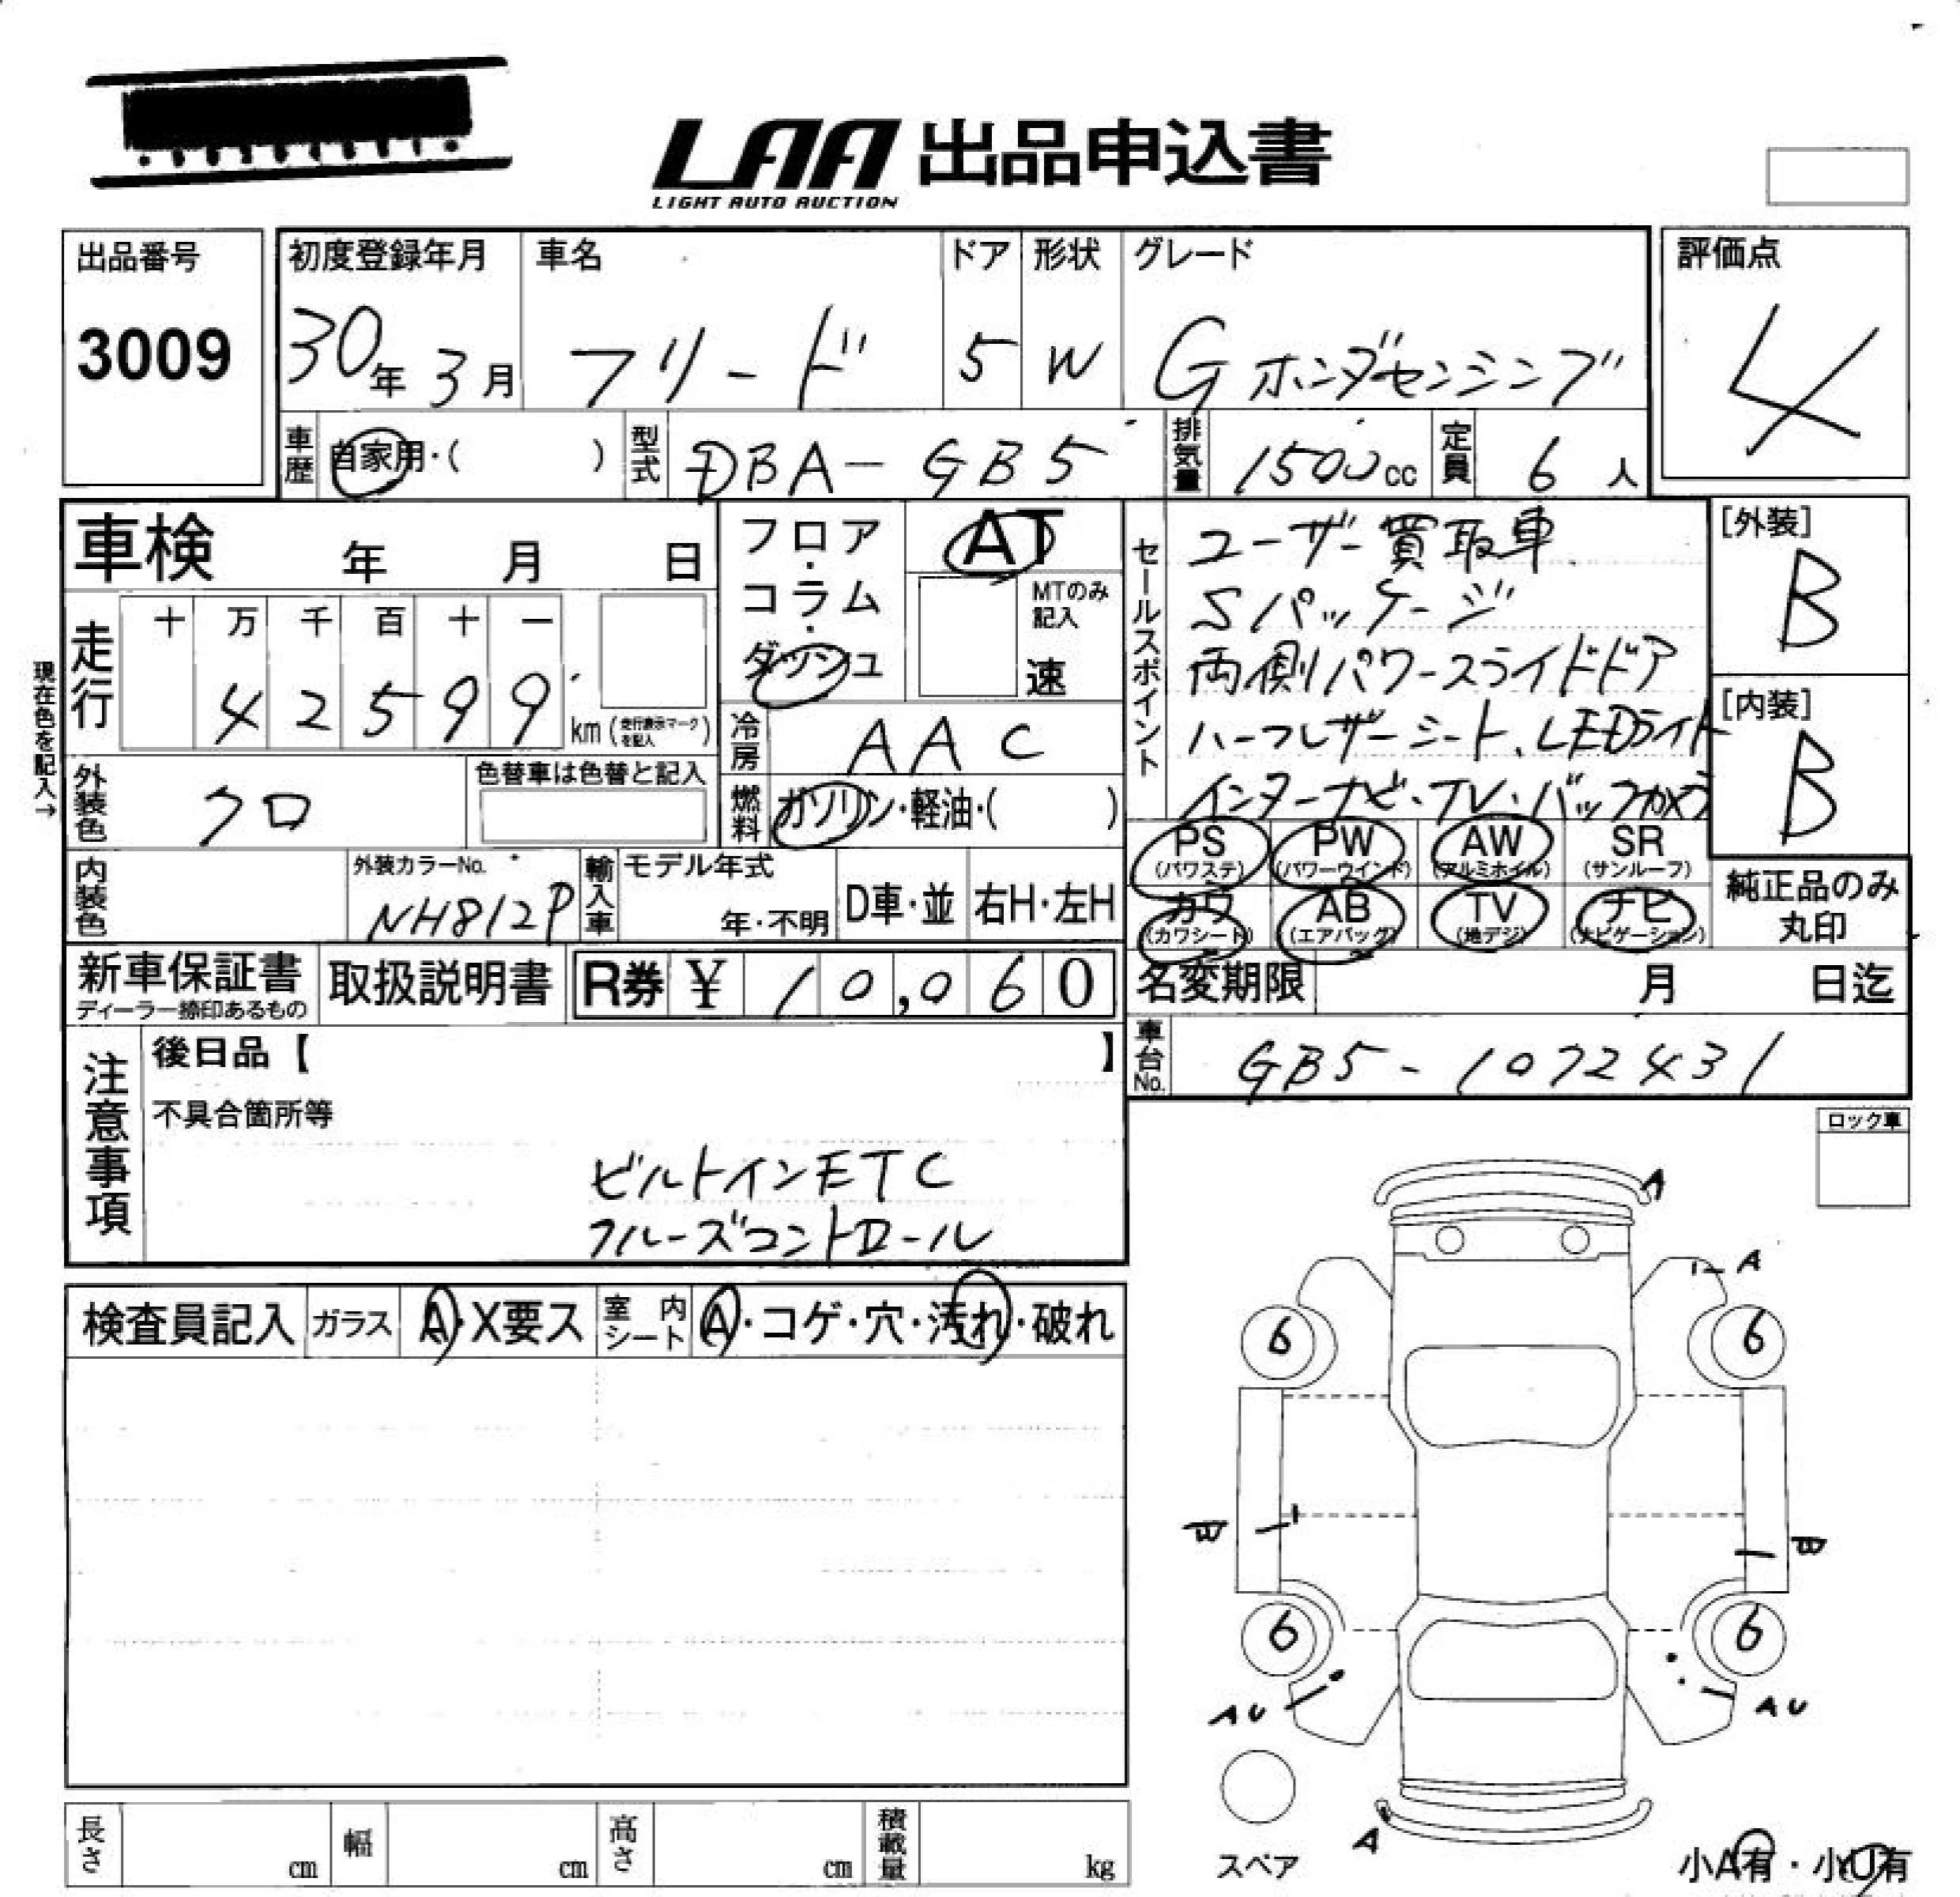 LAA 出品申込書
LIGHT AUTO AUCTION
出品番号
3009
初度登録年月
30年 3月
車名
フリード
ドア
5
形状
W
グレード
G ホンダセンシング
評価点
4
車歴 自家用・( )
型式 DBA-GB5
排気量 1500cc
定員 6 人
車検 年 月 日
現在色を記入→
走行 十 万 千 百 十 一
4 2 5 9 9 km (走行表示マークを記入)
フロア・コラム・ダッシュ
AT
MTのみ記入
速
冷房 AAC
燃料 ガソリン・軽油・( )
外装色 クロ
色替車は色替と記入
内装色
外装カラーNo.
NH812P
輸入車
モデル年式
年・不明
D車・並
右H・左H
セールスポイント
ユーザー買取車
Sパッケージ
両側パワースライドドア
ハーフレザーシート、LEDライト
インターナビ・TV・バックカメラ
[外装]
B
[内装]
B
PS (パワステ)
PW (パワーウインド)
AW (アルミホイル)
SR (サンルーフ)
カワ (カワシート)
AB (エアバッグ)
TV (地デジ)
ナビ (ナビゲーション)
純正品のみ
丸印
新車保証書
ディーラー捺印あるもの
取扱説明書
R券 ¥ 10,060
名変期限 月 日迄
車台No. GB5-1072431
注意事項
後日品【 】
不具合箇所等
ビルトインETC
クルーズコントロール
ロック車
検査員記入
ガラス A・X要ス
室内シート A・コゲ・穴・汚れ・破れ
A
A
6 6
B B
6 6
AU AU
A
スペア
小A有・小U有
長さ cm
幅 cm
高さ cm
積載量 kg